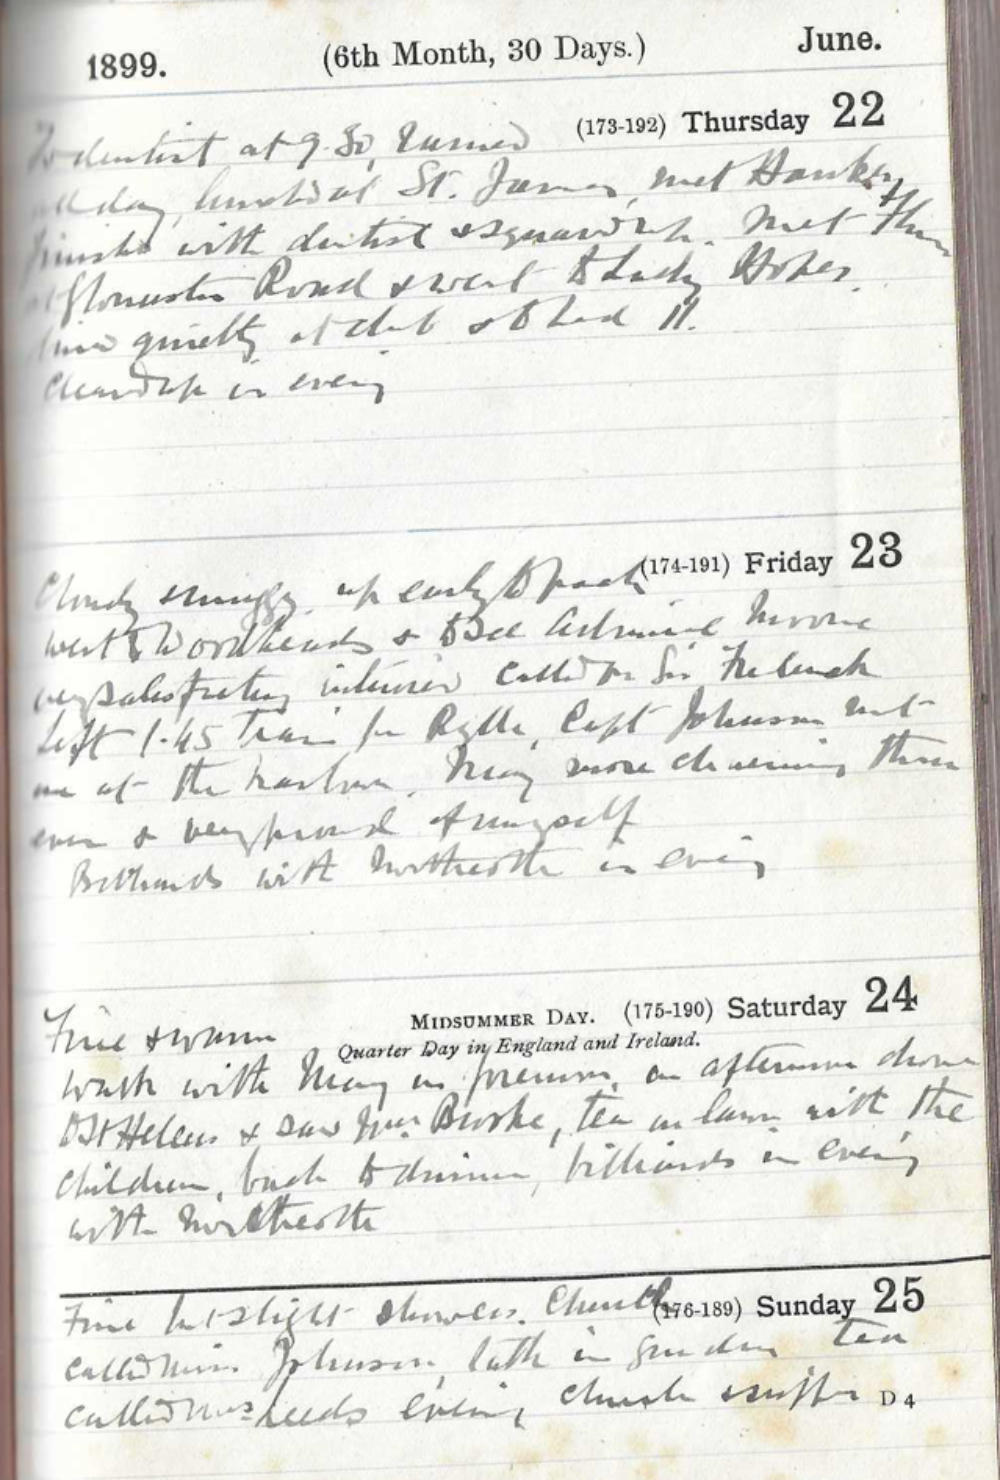 1899. (6th Month, 30 Days.) June.
(173-192) Thursday 22
To dentist at 9.30,
all day, lunched at St. James, met
finish with dentist & squared up. Met
at Gloucester Road & went to Lady
quietly at club & to bed 11.
Cleared up in evening
(174-191) Friday 23
Cloudy & muggy, up early to pack
went to & to see Admiral Moore
very satisfactory interview called on Sir Frederick
Left 1.45 train for Ryde, Capt Johnson met
me at the harbour. May more charming than
ever & very proud of myself
Billiards with Northcote in evening
MIDSUMMER DAY. (175-190) Saturday 24
Quarter Day in England and Ireland.
Fine & warm
Walk with May in forenoon, in afternoon drove
to St Helens & saw Mrs Brooke, tea on lawn with the
children, back to dinner, billiards in evening
with Northcote
(176-189) Sunday 25
Fine but slight showers. Church
called Johnson, in garden tea
called Mrs evening church & supper
D 4